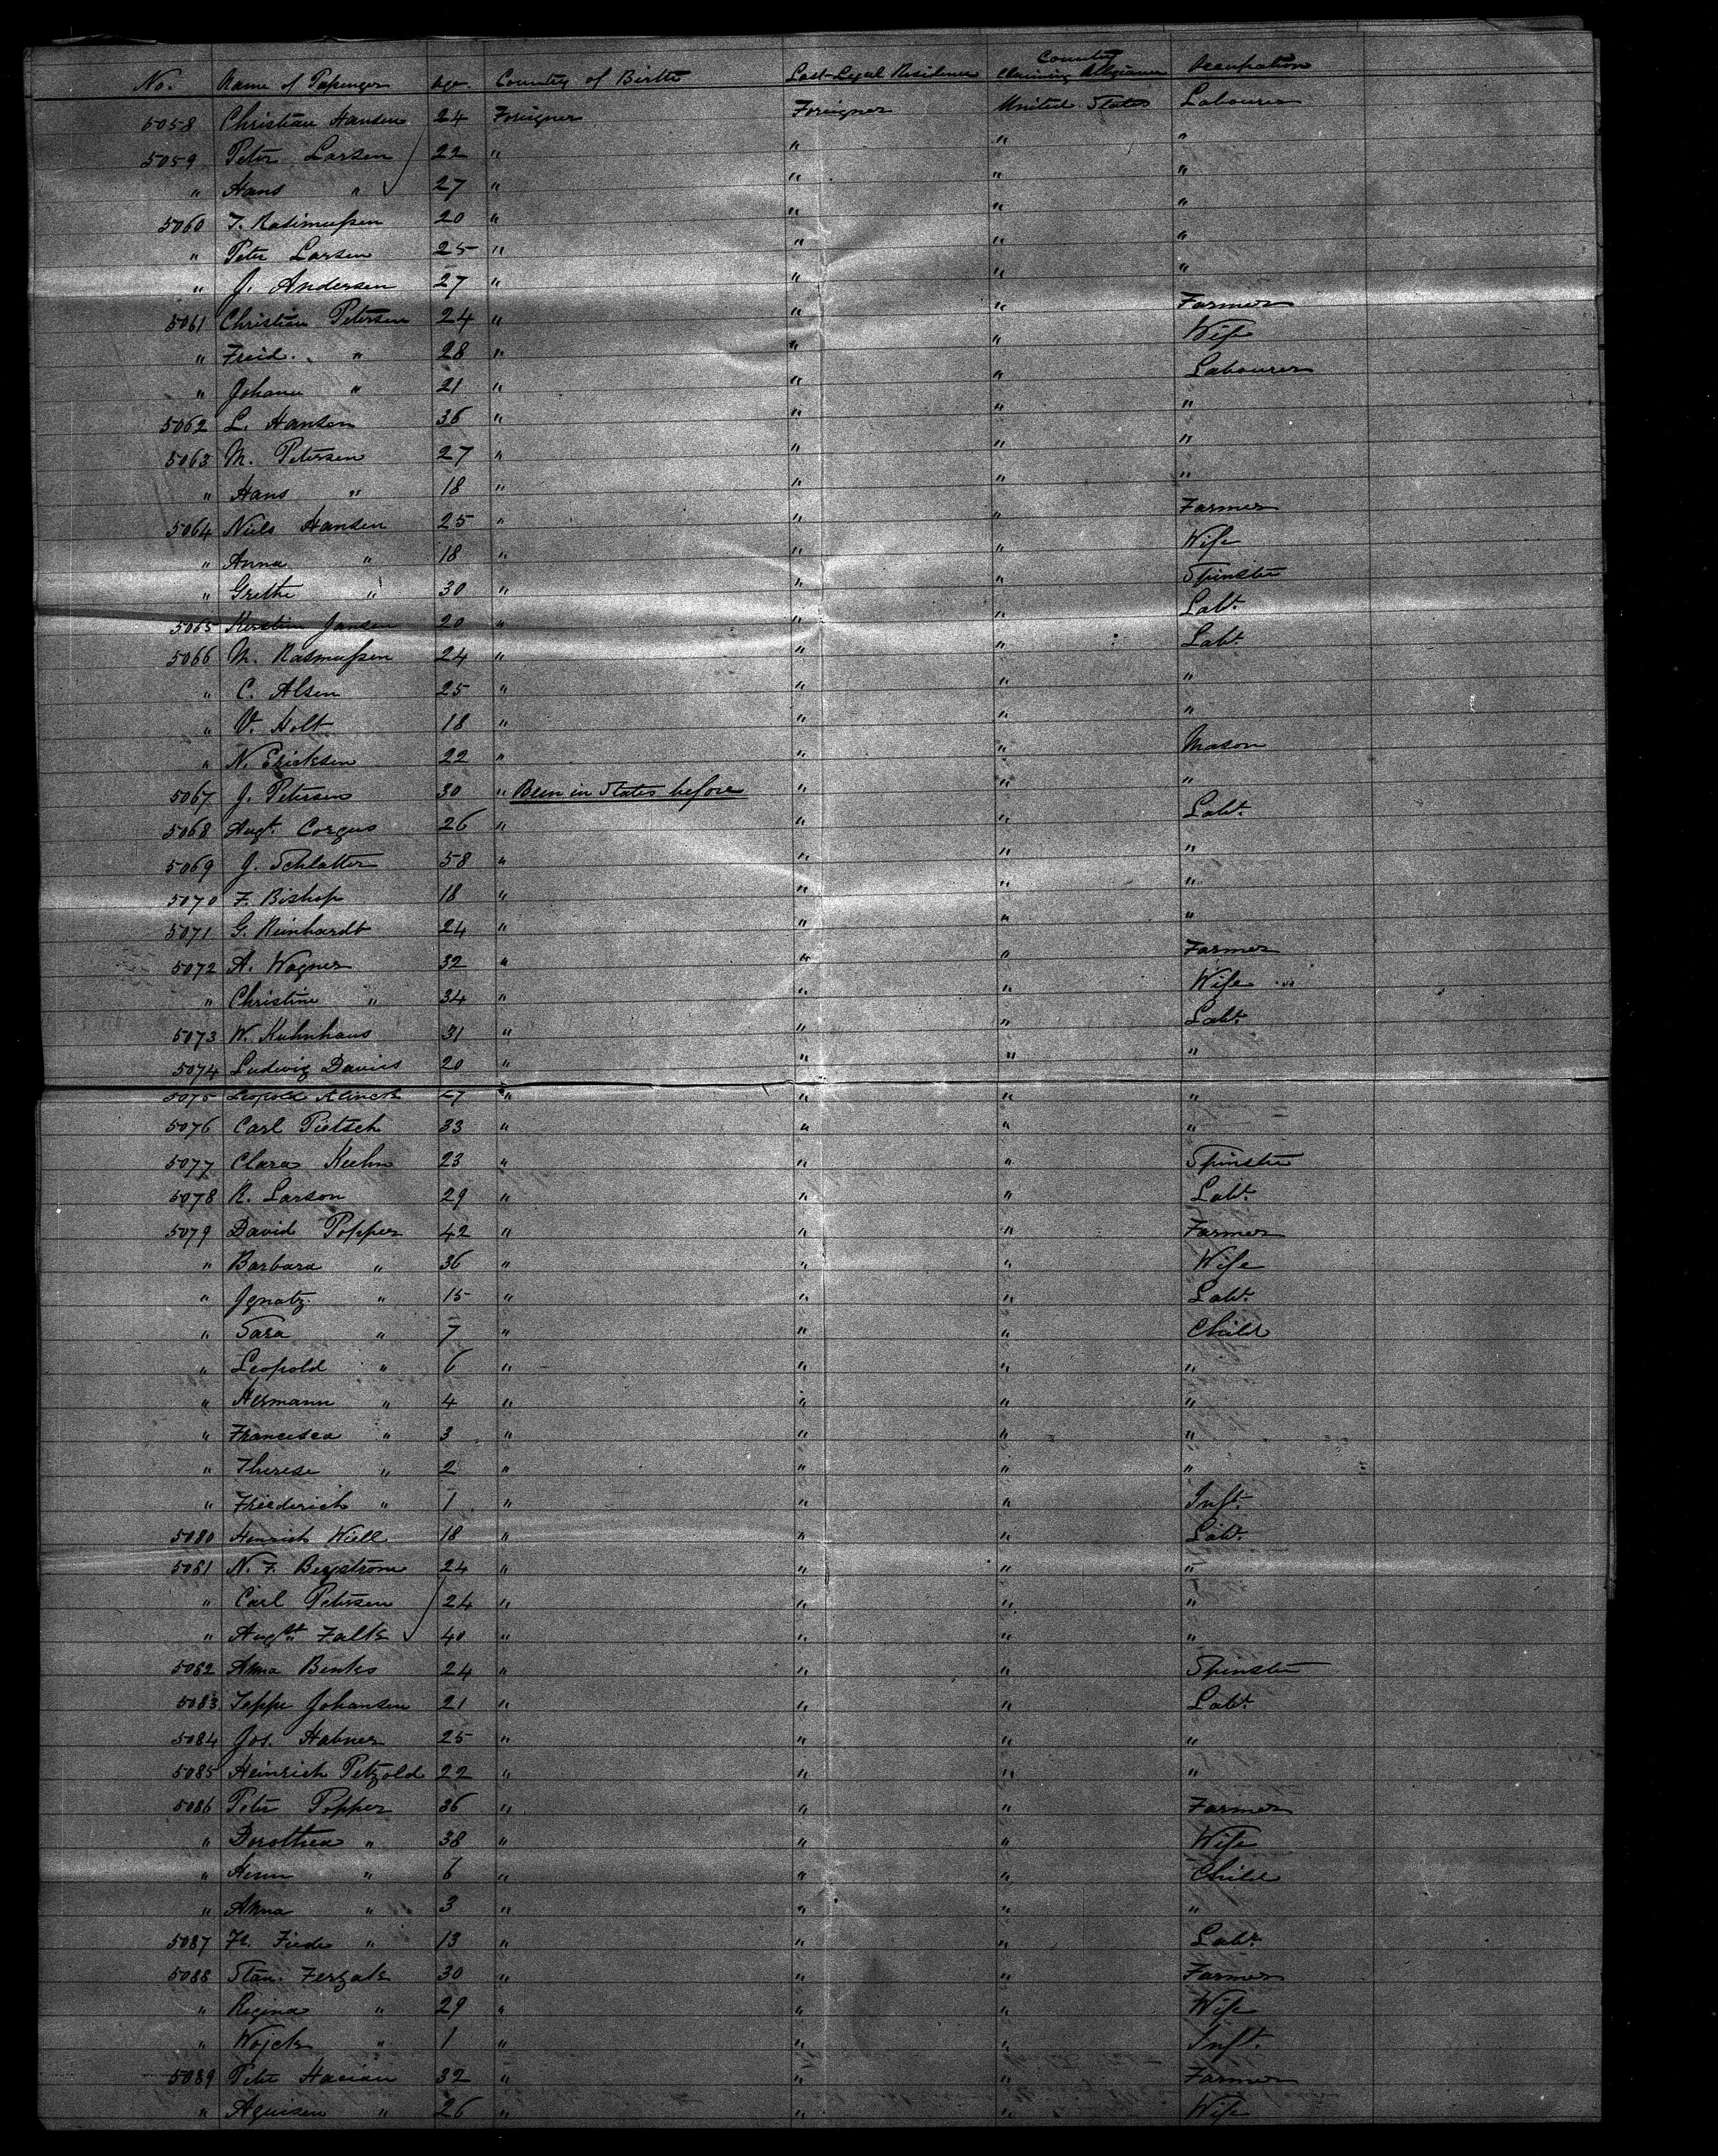 No. Name of Passenger Age Country of Birth Last Legal Residence Country Claiming Allegiance Occupation
5058 Christian Hansen 24 Foreigner Foreigner United States Labourer
5059 Peter Larsen 22 " " " "
" Hans " 27 " " " "
5060 J. Rasmussen 20 " " " "
" Peter Larsen 25 " " " "
" J. Andersen 27 " " " "
5061 Christian Petersen 24 " " " Farmer
" Freid. " 28 " " " Wife
" Johann " 21 " " " Labourer
5062 L. Hansen 36 " " " "
5063 M. Petersen 27 " " " "
" Hans " 18 " " " "
5064 Niels Hansen 25 " " " Farmer
" Anna " 18 " " " Wife
" Grethe " 30 " " " Spinster
5065 Kerstin Jansen 20 " " " Labr.
5066 M. Rasmussen 24 " " " Labr
" C. Alsen 25 " " " "
" V. Holt 18 " " " "
" N. Ericksen 22 " " " Mason
5067 J. Petersen 30 " Been in States before " " "
5068 Augt. Corgus 26 " " " Labr.
5069 J. Schlatter 58 " " " "
5070 F. Bishop 18 " " " "
5071 G. Reinhardt 24 " " " "
5072 A. Wagner 32 " " " Farmer
" Christine " 34 " " " Wife
5073 W. Kuhnhaus 31 " " " Labr.
5074 Ludwig Davies 20 " " " "
5075 Leopold 27 " " " "
5076 Carl Pietsch 33 " " " "
5077 Clara Kuehn 23 " " " Spinster
5078 R. Larson 29 " " " Labr.
5079 David Popper 42 " " " Farmer
" Barbara " 36 " " " Wife
" Ignatz " 15 " " " Labr.
" Sara " 7 " " " Child
" Leopold " 6 " " " "
" Hermann " 4 " " " "
" Francesca " 3 " " " "
" Therese " 2 " " " "
" Friederich " 1 " " " Inft.
5080 Heinrich Wiell 18 " " " Labr.
5081 N. F. Bergstrom 24 " " " "
" Carl Petersen 24 " " " "
" Augst Falk 40 " " " "
5082 Anna Benks 24 " " " Spinster
5083 Jeppe Johansen 21 " " " Labr.
5084 Jos. Habner 25 " " " "
5085 Heinrich Petzold 22 " " " "
5086 Peter Popper 36 " " " Farmer
" Dorothea " 38 " " " Wife
" " 6 " " " Child
" Anna " 3 " " " "
5087 " 13 " " " Labr.
5088 Stan. Zerzak 30 " " " Farmer
" Regina " 29 " " " Wife
" Wojck " 1 " " " Inft.
5089 Peter 32 " " " Farmer
" " 26 " " " Wife